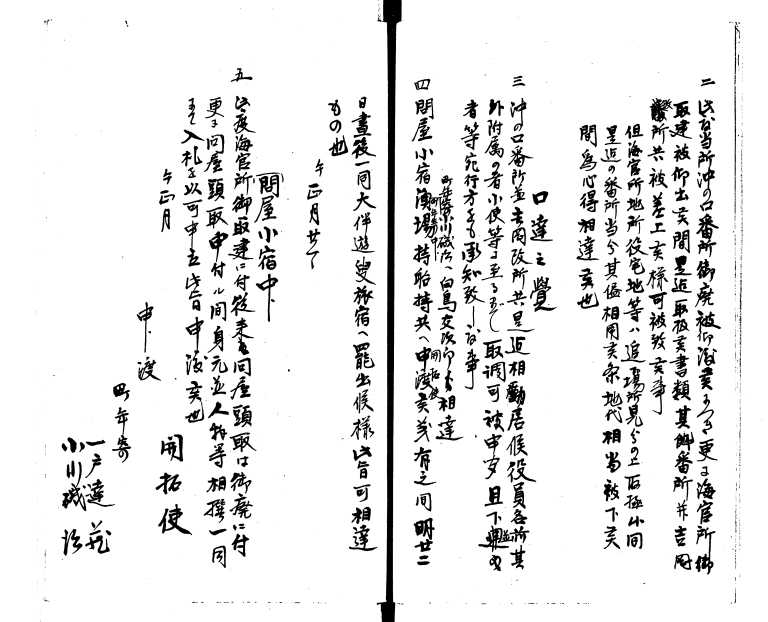 二 此度当所沖の口番所御廃被仰渡候ニつき更ニ海官所御
取建被仰出候間是迄取扱候書類其餘番所并吉岡
番所共被差上候様可被致候事
但海官所地所役宅地等ハ追々場所見分の上取極候間
是迄の番所当分其儘相用候条地代相当被下候
間為心得相達候也
口達之覚
三 沖の口番所並吉岡改所共是迄相勤居候役員各所其
外附属の者小使等ニ至るまで取調可被申出且下
者等宛行方をも承知致し度候事
町年寄小川磯治へ白鳥
相達
四 問屋小宿漁場持船持共へ申渡候義有之間明廿二
日昼後一同大伴遊叟旅宿へ罷出候様此旨可相達
もの也
午正月廿一
問屋小宿中
五 此度海官所御取建に付従来問屋頭取は御廃に付
更ニ問屋頭取申付ル間身元並人物等相撰一同
にて入札を以可申立此旨申渡候也
午正月
開拓使
申渡
町年寄
一戸達蔵
小川磯治